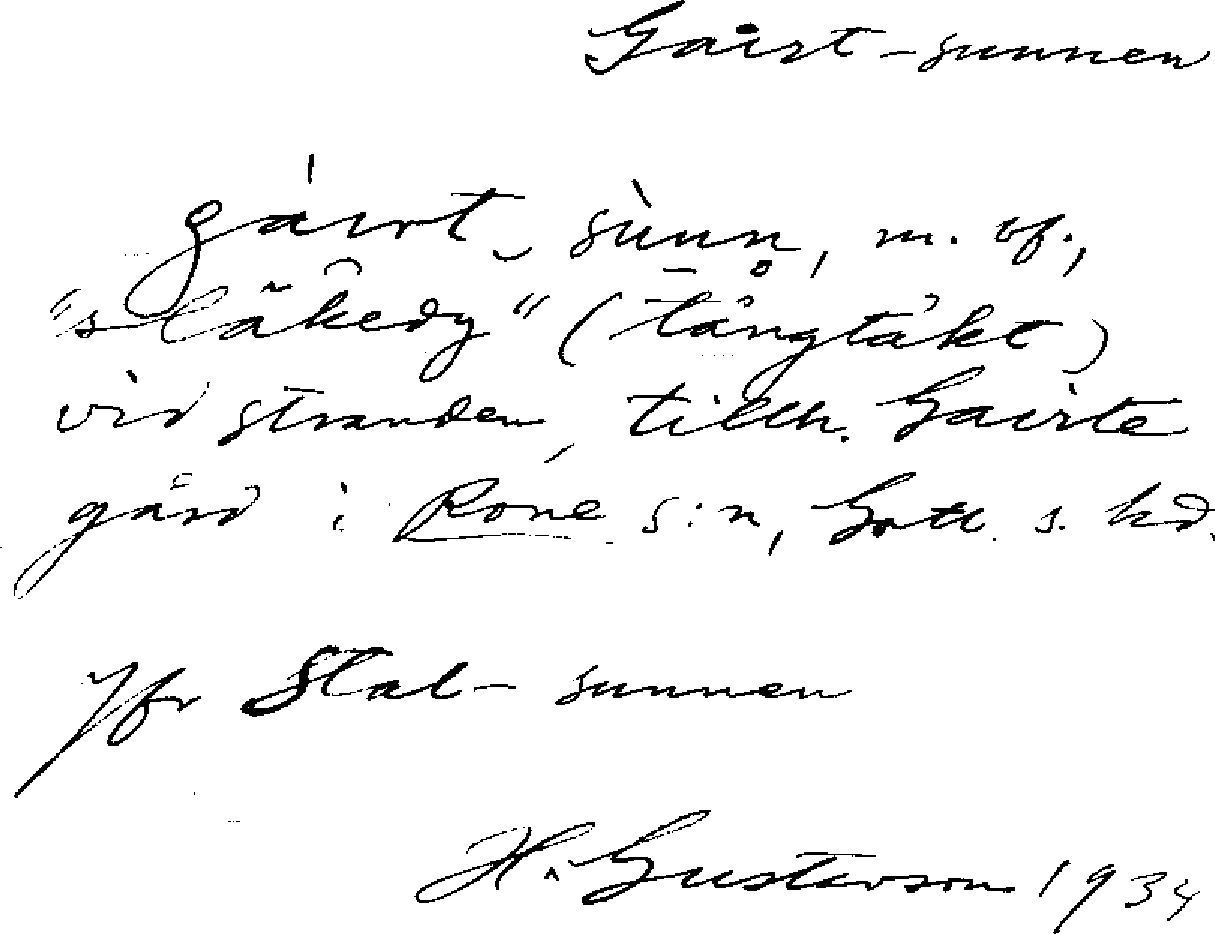 Gairt-sunnen
gáirt-sùnn, m. bf.,
"släkedy" (tångtäkt)
vid stranden, tillh. Gairte
gård i Rone s:n, Gotl. s. hd.
Jfr Stal-sunnen
H. Gustavson 1934